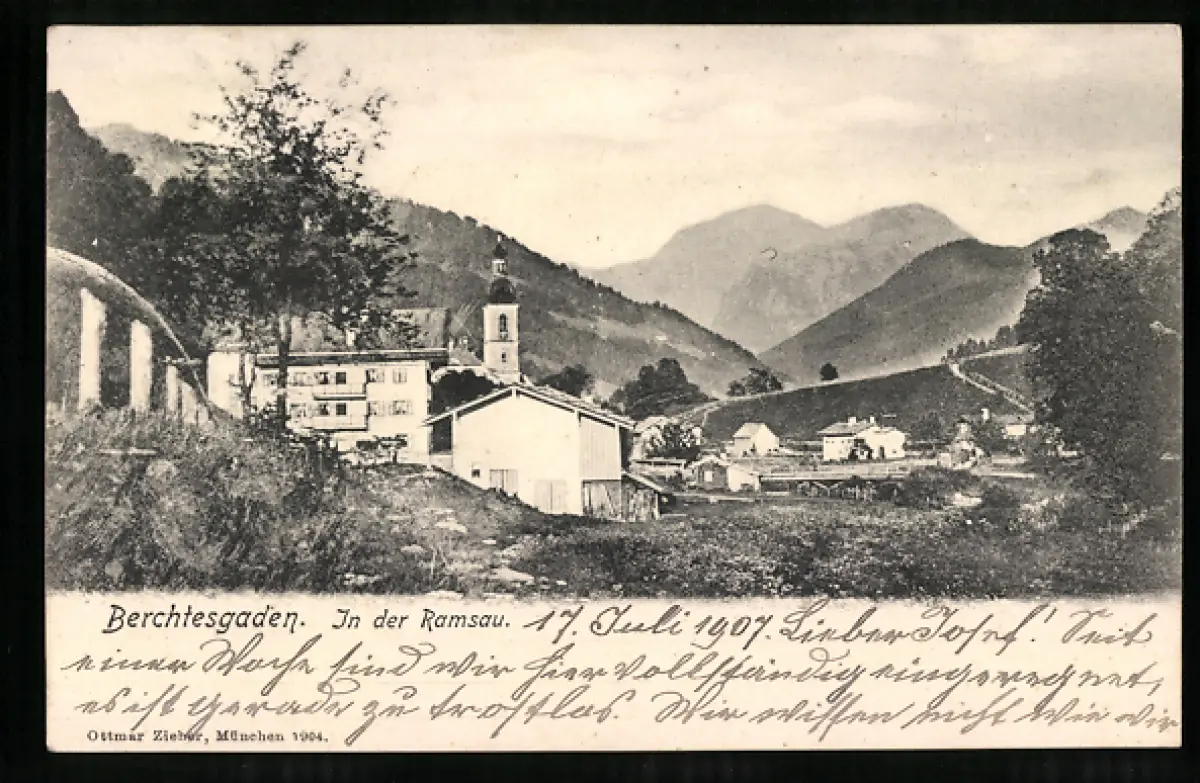 Berchtesgaden. In der Ramsau. 17. Juli 1907. Lieber Josef! Seit
einer Woche sind wir hier vollständig eingeregnet,
es ist gerade zu trostlos. Wir wissen nicht wie wir
Ottmar Zieher, München 1904.